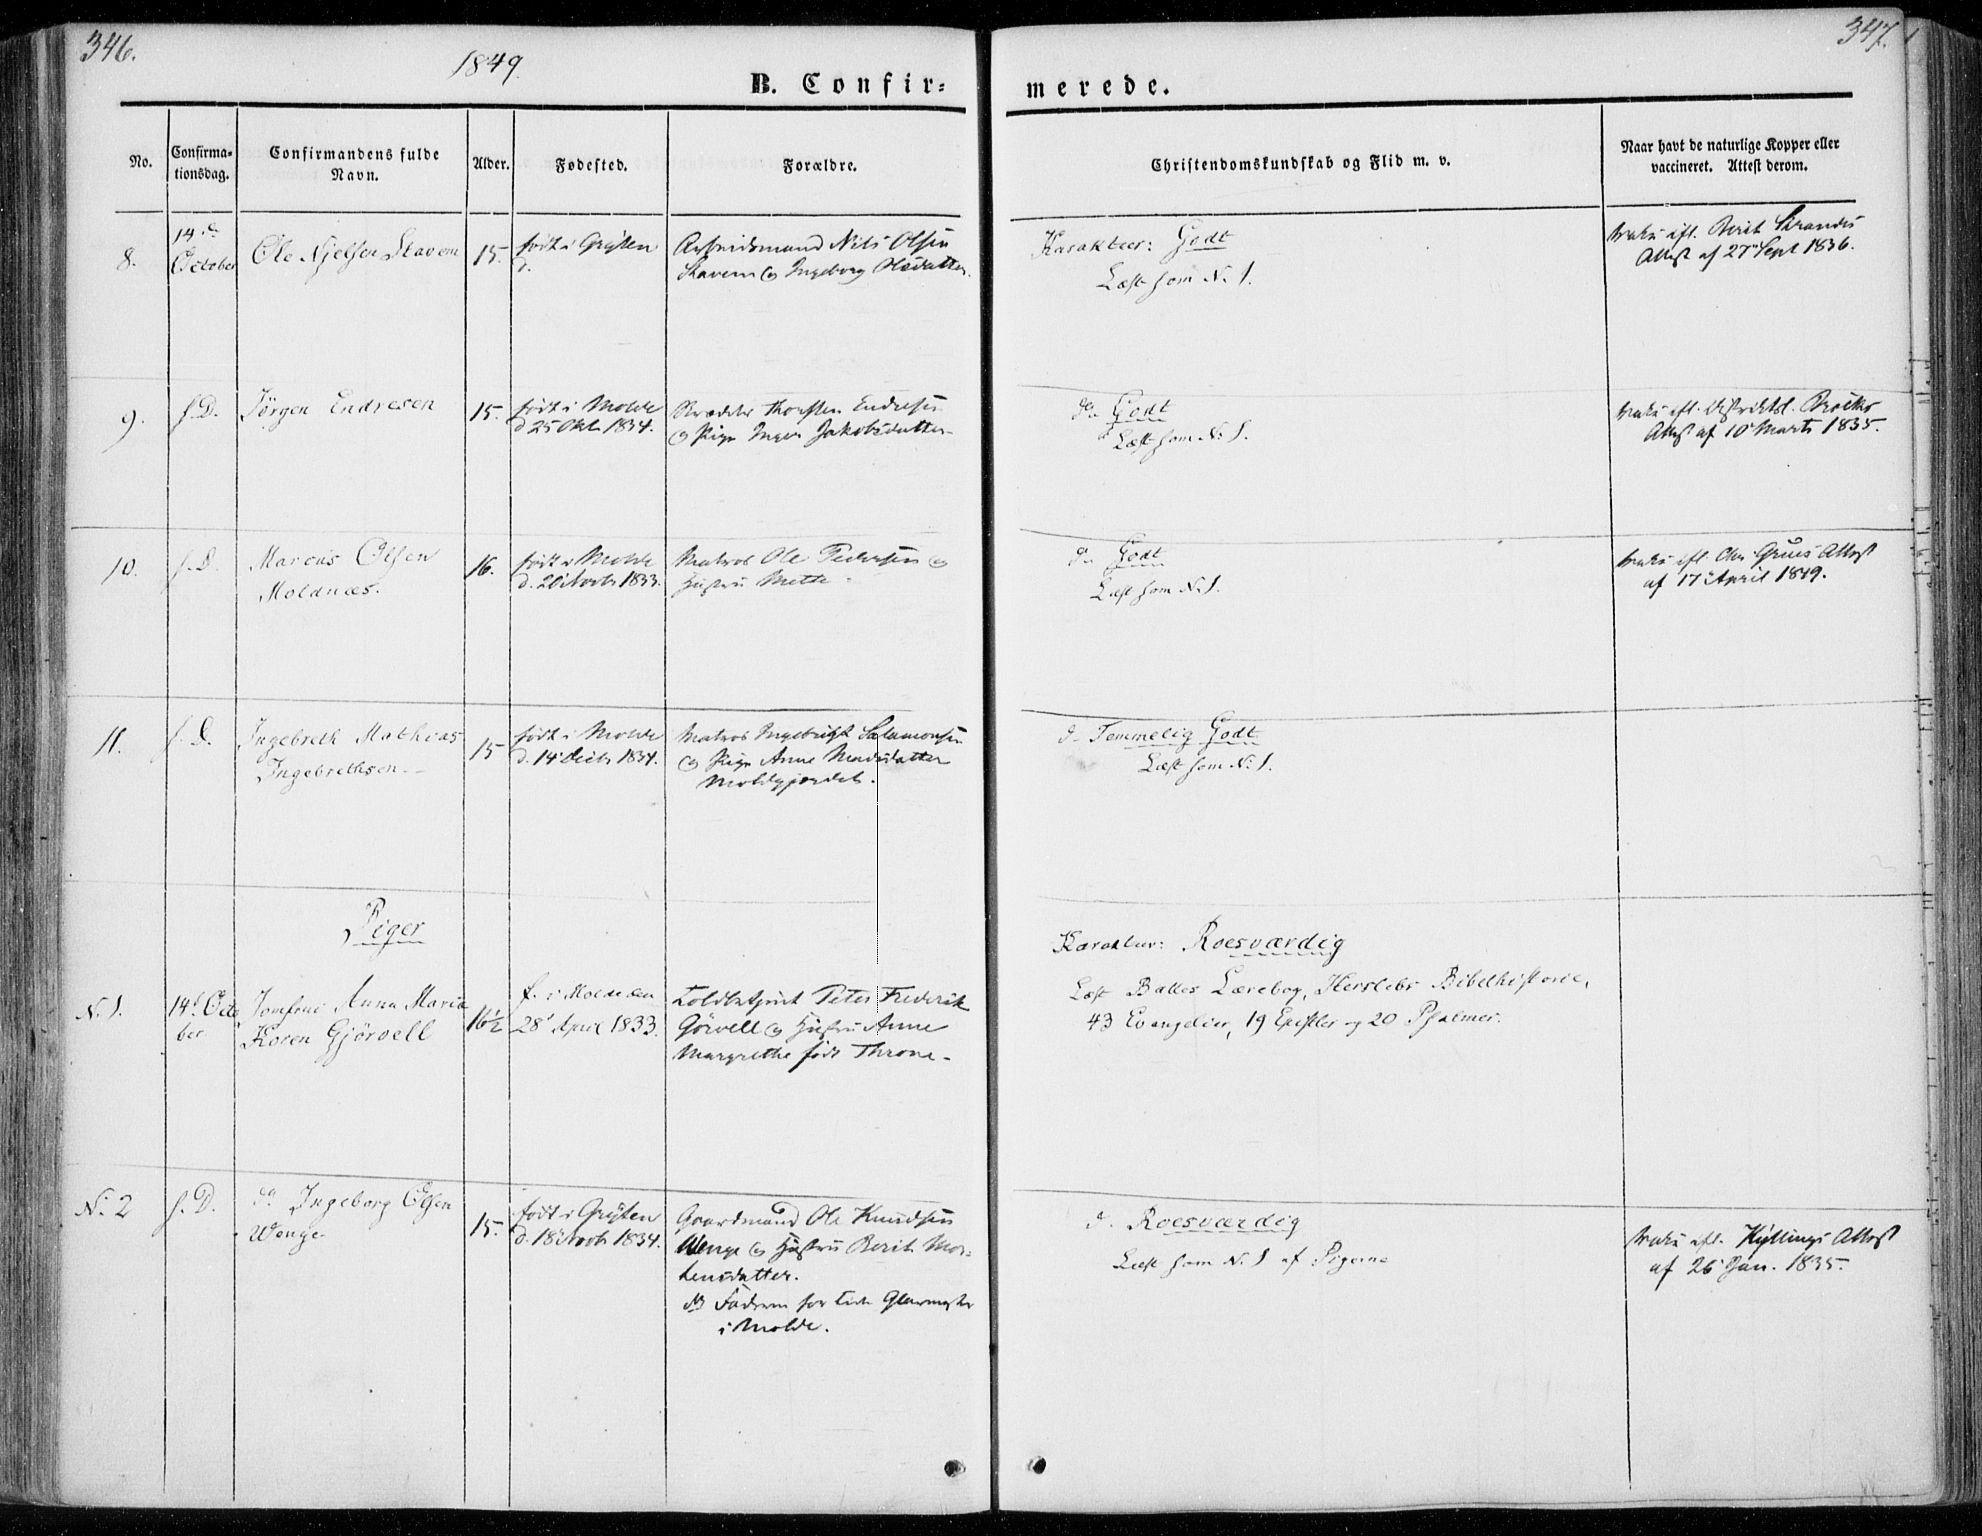 346.
1849
B. Confir-
merede.
347.
No.
Confirma-
tionsdag.
Confirmandens fulde
Navn.
Alder.
Fødested.
Forældre.
Christendomskundskab og Flid m. v.
Naar havt de naturlige Kopper eller
vaccineret. Attest derom.
8.
14.d
October
Ole Njelsen Stavem
15.
født i Grÿten
d.
Arbeidsmand Nils Olsen
Stavem og Ingeborg Olsdatter.
Karakteer: Godt
Læst som N. 1.
vakc. efl. Berit Strandes
Attest af 27 Sept 1836.
9.
s. D.
Jörgen Endresen
15.
født i Molde
d 25 Okt. 1834.
Thorsten Endresen
og Pige Inger Jakobsdatter
do. Godt
Læst som N. 1.
vakc. efl. Distriktsl.
Attest af 10 Marts 1835.
10.
s. D.
Marcus Olsen
Moldnæs.
16.
født i Molde
d. 20 Novb. 1833.
Matros Ole Pedersen og
Hustru Mette.
do. Godt
Læst som N. 1.
vakc. efl. Chr. Gruis Attest
af 17 April 1849.
11.
s. D.
Ingebreth Mathias
Ingebrethsen
15
født i Molde
d. 14 Decb. 1834.
Matros Ingebrigt Salamonsen
og Pige Anne Madsdatter
Moldegjærdet.
d. Temmelig Godt
Læst som N. 1.
Piger
N. 1.
14d Octo
ber
Jomfru Anna Maria
Koren Gjörvell
16½
f. i Molde den
28 April 1833.
Toldbetjent Peter Frederik
Görvell og Hustru Anne
Margrethe født Throne
Karakteer: Roesværdig
Læst Balles Lærebog, Herslebs Bibelhistorie,
43 Evangelier, 19 Epistler og 20 Psalmer.
N. 2
s. D.
do Ingeborg Olsen
Wenge
15.
født i Grÿten
d. 18 Novb. 1834.
Gaardmand Ole Knudsen
Wenge og Hustru Berit Mor-
tensdatter.
NB Faderen for tiden Glarmester
i Molde.
d. Roesværdig
Læst som N. 1 af Pigerne
vakc. efl. Kyllings Attest
af 26 Jan. 1835.